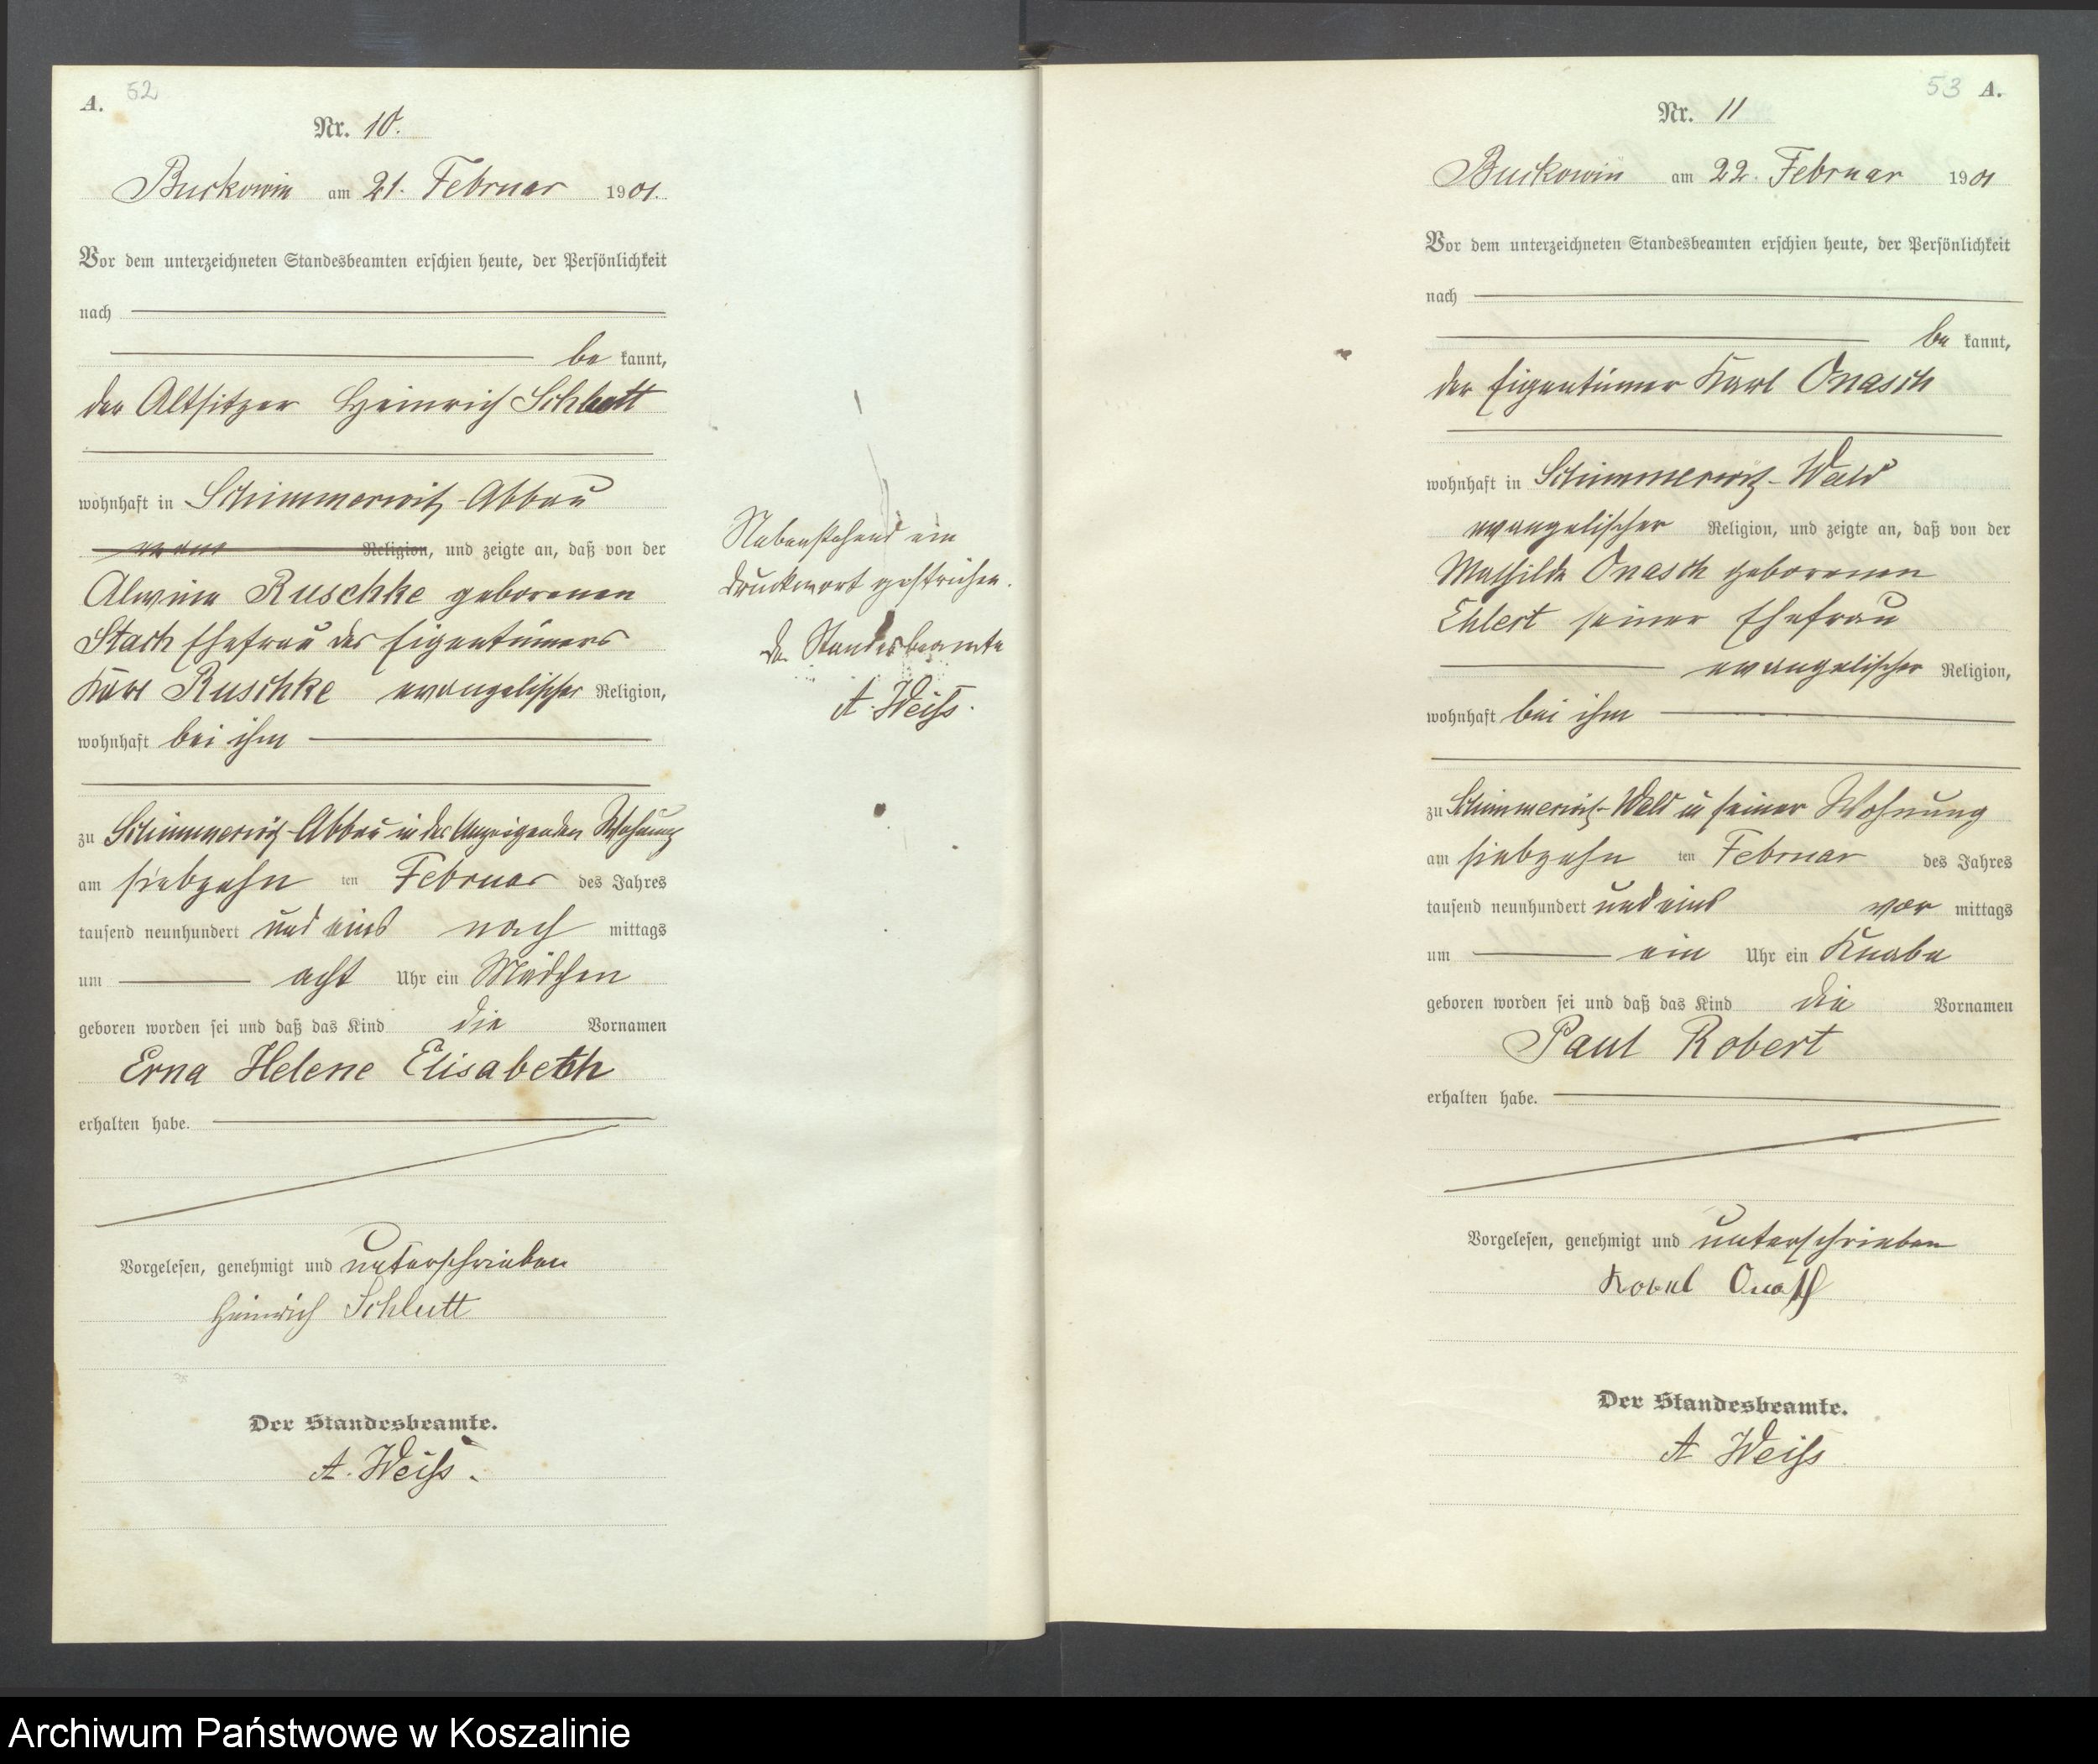 A. 52
Nr. 10.
Buckowin am 21. Februar 1901.
Vor dem unterzeichneten Standesbeamten erschien heute, der Persönlichkeit
nach
be kannt,
der Altsitzer Heinrich Schlutt
wohnhaft in Schimmerwitz-Abbau
Religion, und zeigte an, daß von der
Alwine Ruschke geborenen
Stach Ehefrau des Eigentümers
Karl Ruschke evangelischer Religion,
wohnhaft bei ihm
zu Schimmerwitz-Abbau in des Anzeigenden Wohnung
am siebzehn ten Februar des Jahres
tausend neunhundert und eins nach mittags
um acht Uhr ein Mädchen
geboren worden sei und daß das Kind die Vornamen
Erna Helene Elisabeth
erhalten habe.
Vorgelesen, genehmigt und unterschrieben
Heinrich Schlutt
Der Standesbeamte.
A. Weiß.
Nebenstehend ein
Druckwort gestrichen.
Der Standesbeamte
A. Weiß.
53 A.
Nr. 11
Buckowin am 22. Februar 1901
Vor dem unterzeichneten Standesbeamten erschien heute, der Persönlichkeit
nach
be kannt,
der Eigentümer Karl Onasch
wohnhaft in Schimmerwitz-Wald
evangelischer Religion, und zeigte an, daß von der
Mathilde Onasch geborenen
Ehlert seiner Ehefrau
evangelischer Religion,
wohnhaft bei ihm
zu Schimmerwitz-Wald in seiner Wohnung
am siebzehn ten Februar des Jahres
tausend neunhundert und eins vor mittags
um ein Uhr ein Knabe
geboren worden sei und daß das Kind die Vornamen
Paul Robert
erhalten habe.
Vorgelesen, genehmigt und unterschrieben
Onasch
Der Standesbeamte.
A Weiß
Archiwum Państwowe w Koszalinie